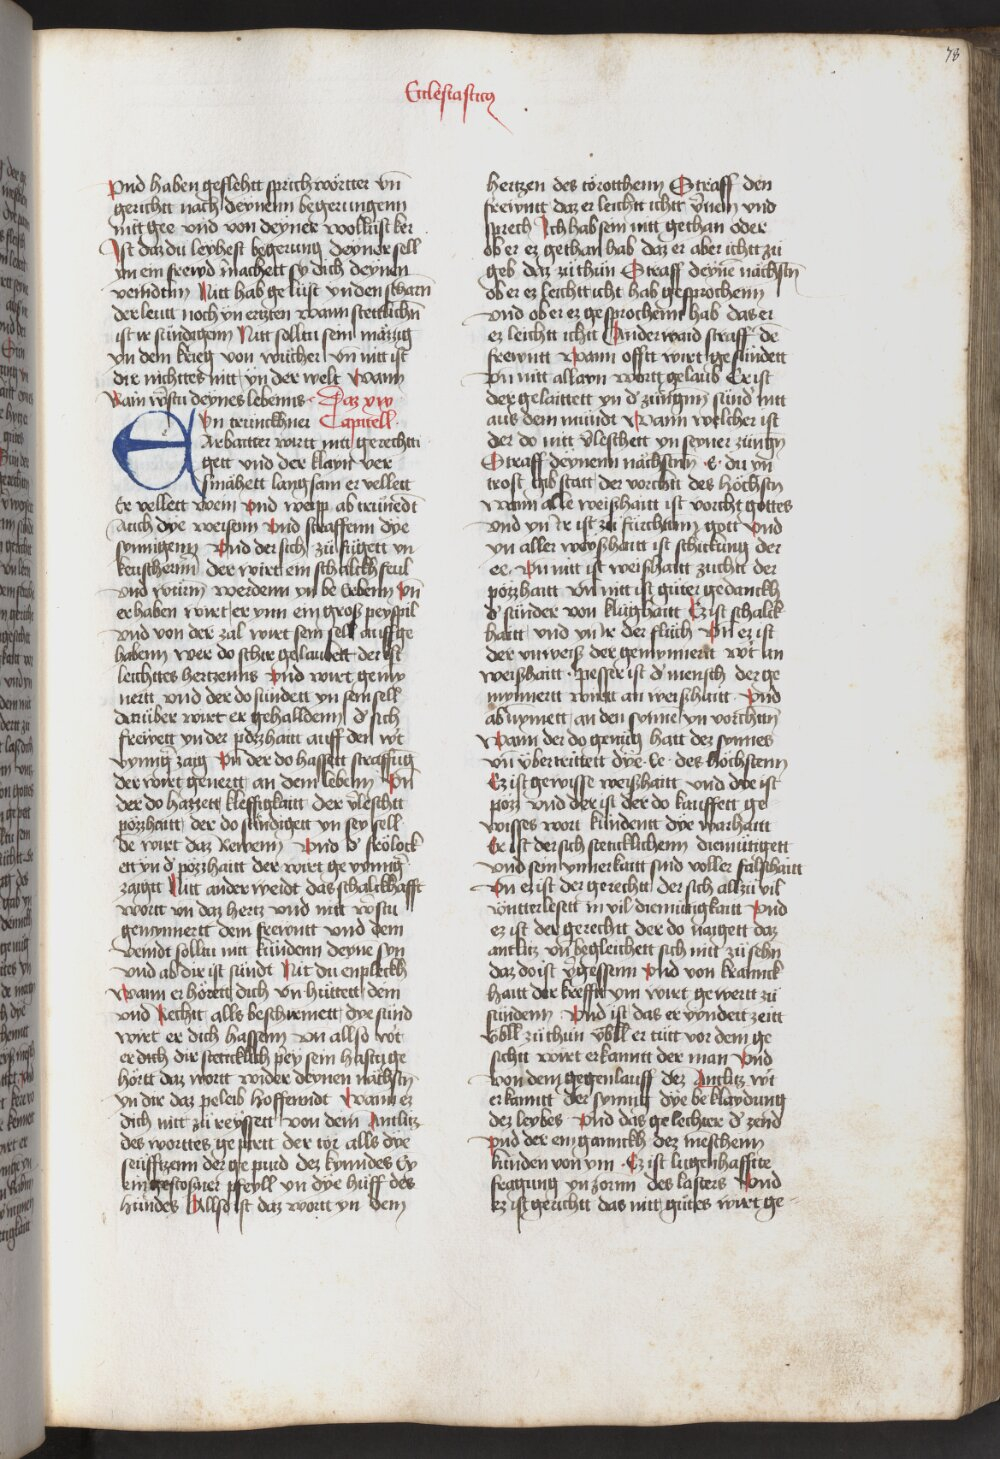 78
Ecclesiasticus
Vnd haben geflehtt sprichwörtter vn̄
gerichtt nach deynenn begerungenn
nitt gee vnd von deyner wollust ker
Ist daz du leyhest begerung deyner sell
yn ein frewd machett sy dich deynen
veindtnn Nitt hab gelüst yn den scharn
der leutt noch yn ertzten wann stettlichn̄
ist ir sündigenn Nitt solltu sein mäzzig
yn dem krieg von wücher vn nitt ist
dir nichttes nitt yn der welt Wann
Wann wirstu deynes lebenns Daz xix
Yn trincklhner Capitell
Arbaitter wirtt nitt gerechtti
gett vnd der klayn ver
smähett langsam er vellett
Er vellett wein vnd weyp abtrünedt
Auch dye weisenn vnd straffenn dye
synnigenn Vnd der sich zu fügett yn
keuschernn der wirt ein schalckh faul
vnd würm werdenn yn be Erbenn Vn̄
erhaben wirt er ynn ein groß peyspil
vnd von der zal wirt sein sell auffge
habenn wer do schir gelaubett der ist
leichttes hertzenns Vnd wirt gemy
nertt vnd der do sündett yn sein sell
darüber wirt er gehalldenn d' sich
frewett yn der pözzhaitt auff den wt
wynnig zaig Vn der do hassett straffūg
der wirt genertt an dem lebenn Vn̄
der do hazzett kleffigkaitt der v'leschtt
pözzhaitt der do sündigett yn sey sell
de wirt daz Rewenn Vnd d' frölock
ett yn d' pözzhaitt der wirt ge wynnig
zaigtt Nitt anderweidt das schalckhafft
wortt vn̄ daz hertz vnd nitt w'stu
gemynnertt dem frewntt vnd dem
veindt solltu nitt kündenn deyne syn
vnd ab dir ist sündt Nit du enpleckh
Wann er hörett dich vn hüttett dem
vnd Rechtt alls beschirmett dye sünd
wirt er dich hassenn vn allso wt
er dich dir stetticklich pey sein hastu ge
hörtt daz wortt wider deynen nächstn̄
yn dir daz peleib hoffenndt Wann ez
dich nitt zu reyssett von dem Antlitz
des worttes gepirtt der tor alls dye
seüfftzenn der gepurd dez kynndes Ey
ein gestosner pfeyll yn dye hüff des
hündes Allso ist daz wortt yn dem
hertzen des törotthenn Straff den
frewntt daz er leichtt ichtt v'nem vnd
sprech Ich hab sein nitt gethan oder
ob er ez gethan hab daz er aber ichtt zü
geb daz zü thün Straff deynē nächstn
ob er ez leichtt icht hab gesprochenn
vnd ob er ez gesprochenn hab das er
ez leichtt ichtt Anderwaid straff dē
frewntt Wann offtt wirt gesündett
Vn nitt allayn wortt gelaub Er ist
der gelaittett yn d' zungnn sünd nitt
aus dem mündt Wann welcher ist
der do nitt v'leschett yn seyner züngn
Straff deynenn nächstnn E du yn
trost gib statt der vorcht des höchstn
Wann alle weißhaitt ist vorcht gottes
vnd yn ir ist zü fürchtnn gott Vnd
yn aller weyßhaitt ist schickung der
ee Vn nitt ist weißhaitt züchtt der
pözzhaitt vn nitt ist güter gedanckh
d' sünder von klüghaitt Ez ist schalck
haitt vnd yn ir der flüch Vn ez ist
der vnweiß der gemynnertt wt an
weißhaitt pesser ist d' mensch der ge
mynnertt wirtt an weißhaitt Vnd
abnymett an den synne yn vorchtnn
Wann der do genüg hatt dez synnes
vn̄ vbertrittett dye Ee des höchstenn
Ez ist gewisse weißhaitt vnd dye ist
pözz vnd der ist der do kauffett ge
wisses wort kündentt dye warhaitt
Er ist der sich stetticklichenn diemütigett
vnd sein ynnerkaitt sind voller falschaitt
Vn er ist der gerechtt der sich allzu vil
vntterlesett in vil diemütigkaitt Vnd
ez ist der gerechtt der do naigett daz
antlitz vn̄ begleichett sich nitt zü sehn
daz do ist v'gessenn Vnd von kranck
haitt der krefftt ym wirt gewertt zü
sündenn Vnd ist das er vyndett zeitt
vbll zü thün vbll er tütt vor dem ge
sichtt wirt erkanntt der man Vnd
von dem gegenlauff dez Antlitz wt
erkanntt der synnig dye beklaydung
dez leybes Vnd das gelechter d' zend
vnd der eingannckh dez meschenn
künden von ym Ez ist lugenhaffttte
fragung yn zornn des lasters Vnd
ez ist gerichtt das nitt gütes wirt ge